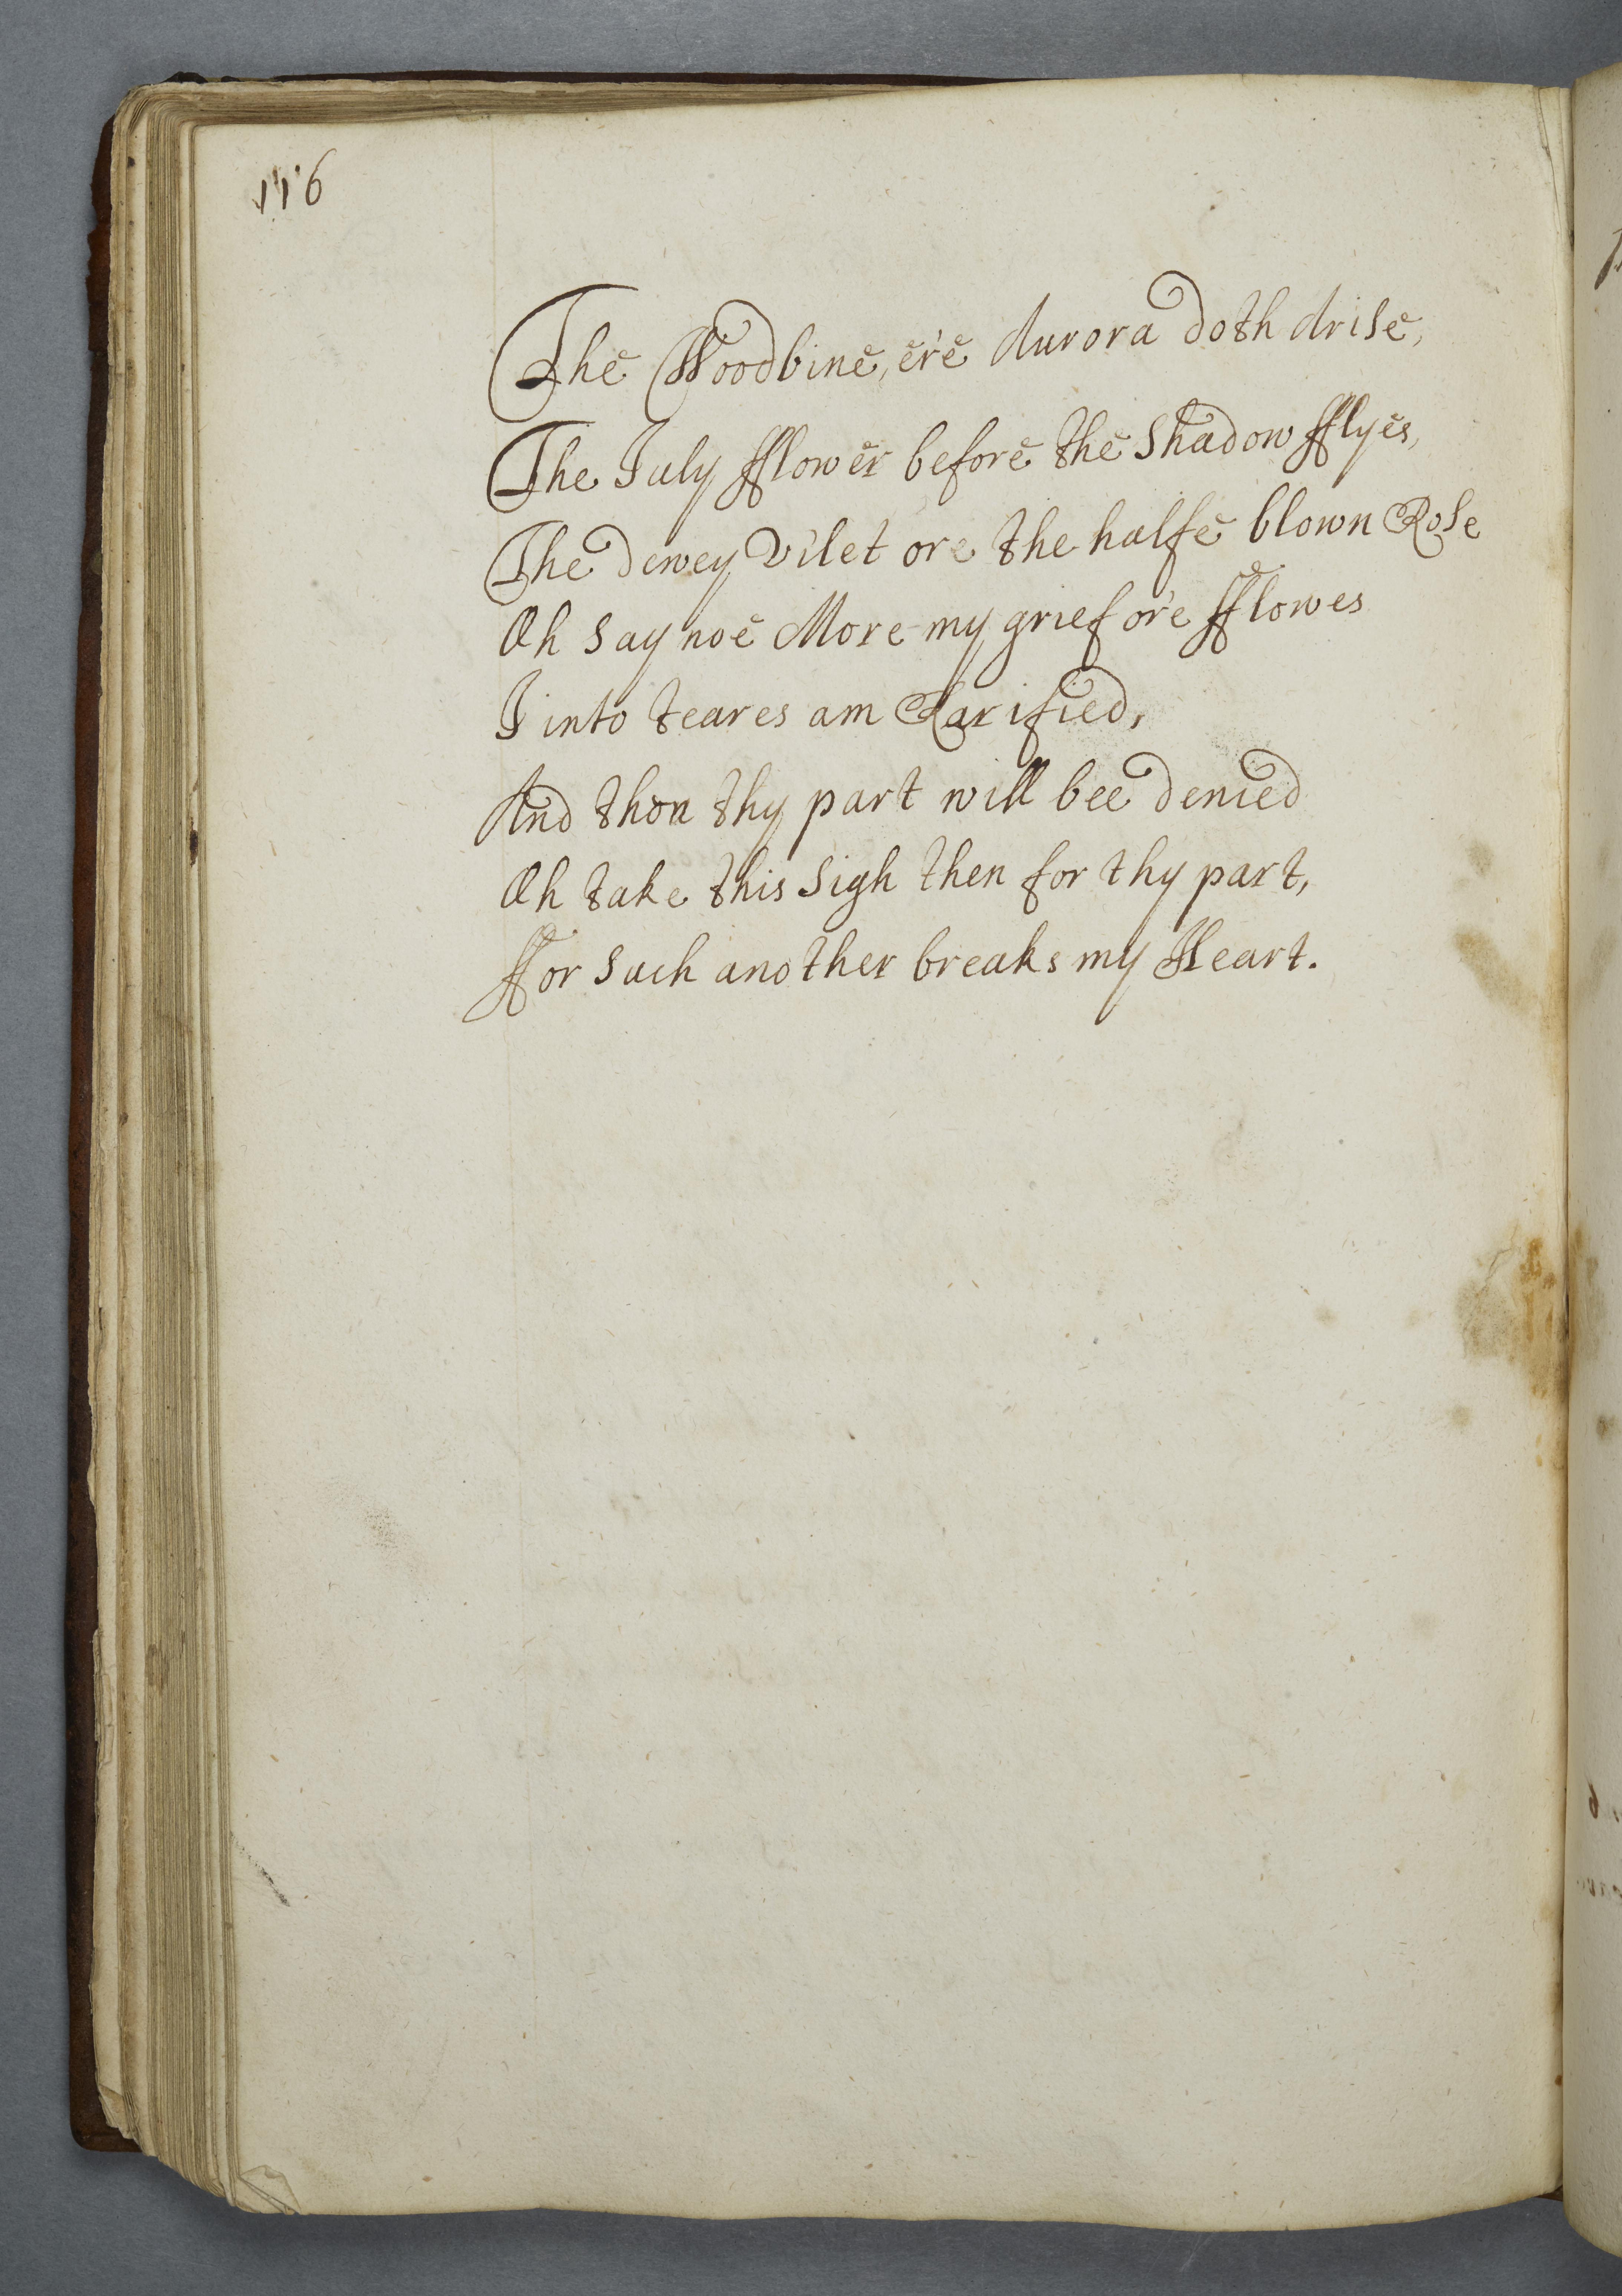 116
The Woodbine, e're Aurora doth Arise,
The July fflower before the Shadow fflyes,
The dewey Vi'let or'e the halfe blown Rose
Oh say noe More my grief or'e fflowes
I into teares am Rarified,
And thou thy part will bee denied
Oh take this Sigh then for thy part,
ffor such another breaks my Heart.